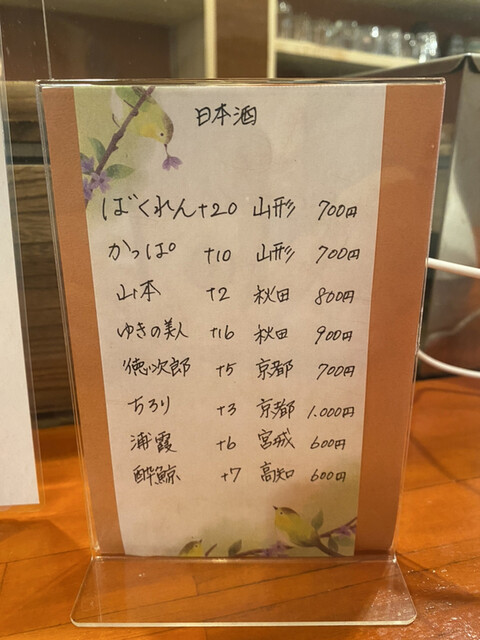 日本酒
ばくれん +20 山形 700円
かっぱ +10 山形 700円
山本 +2 秋田 800円
ゆきの美人 +16 秋田 900円
徳次郎 +5 京都 700円
ちろり +3 京都 1.000円
浦霞 +6 宮城 600円
酔鯨 +7 高知 600円